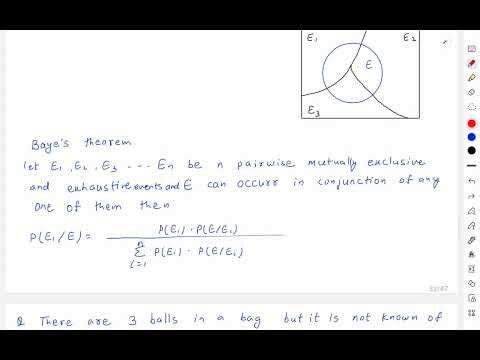 E₁ E₂
E
E₃
Baye's theorem
let E₁, E₂, E₃ --- En be n pairwise mutually exclusive
and exhaustive events and E can occurr in conjunction of any
one of them then
P(E₁/E) = P(E₁) · P(E/E₁)
n
Σ P(Ei) · P(E/Ei)
i=1
Q There are 3 balls in a bag but it is not known of